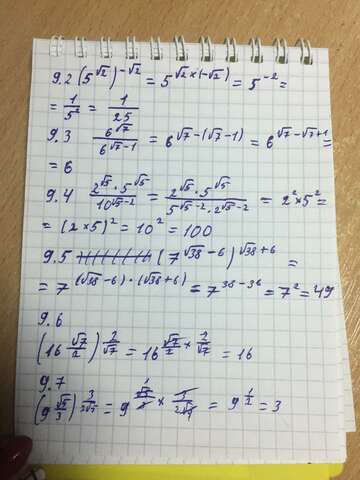 9.2 (5^√2)^-√2 = 5^√2×(-√2) = 5^-2 =
= 1/5² = 1/25
9.3 6^√7/6^√7-1 = 6^√7-(√7-1) = 6^√7-√7+1 =
= 6
9.4 2^√5·5^√5/10^√5-2 = 2^√5·5^√5/5^√5-2·2^√5-2 = 2²×5² =
= (2×5)² = 10² = 100
9.5 (7^√38-6)^√38+6 =
= 7^(√38-6)·(√38+6) = 7^38-36 = 7² = 49
9.6
(16^√7/2)^2/√7 = 16^√7/2×2/√7 = 16
9.7
= 9^1/2 = 3